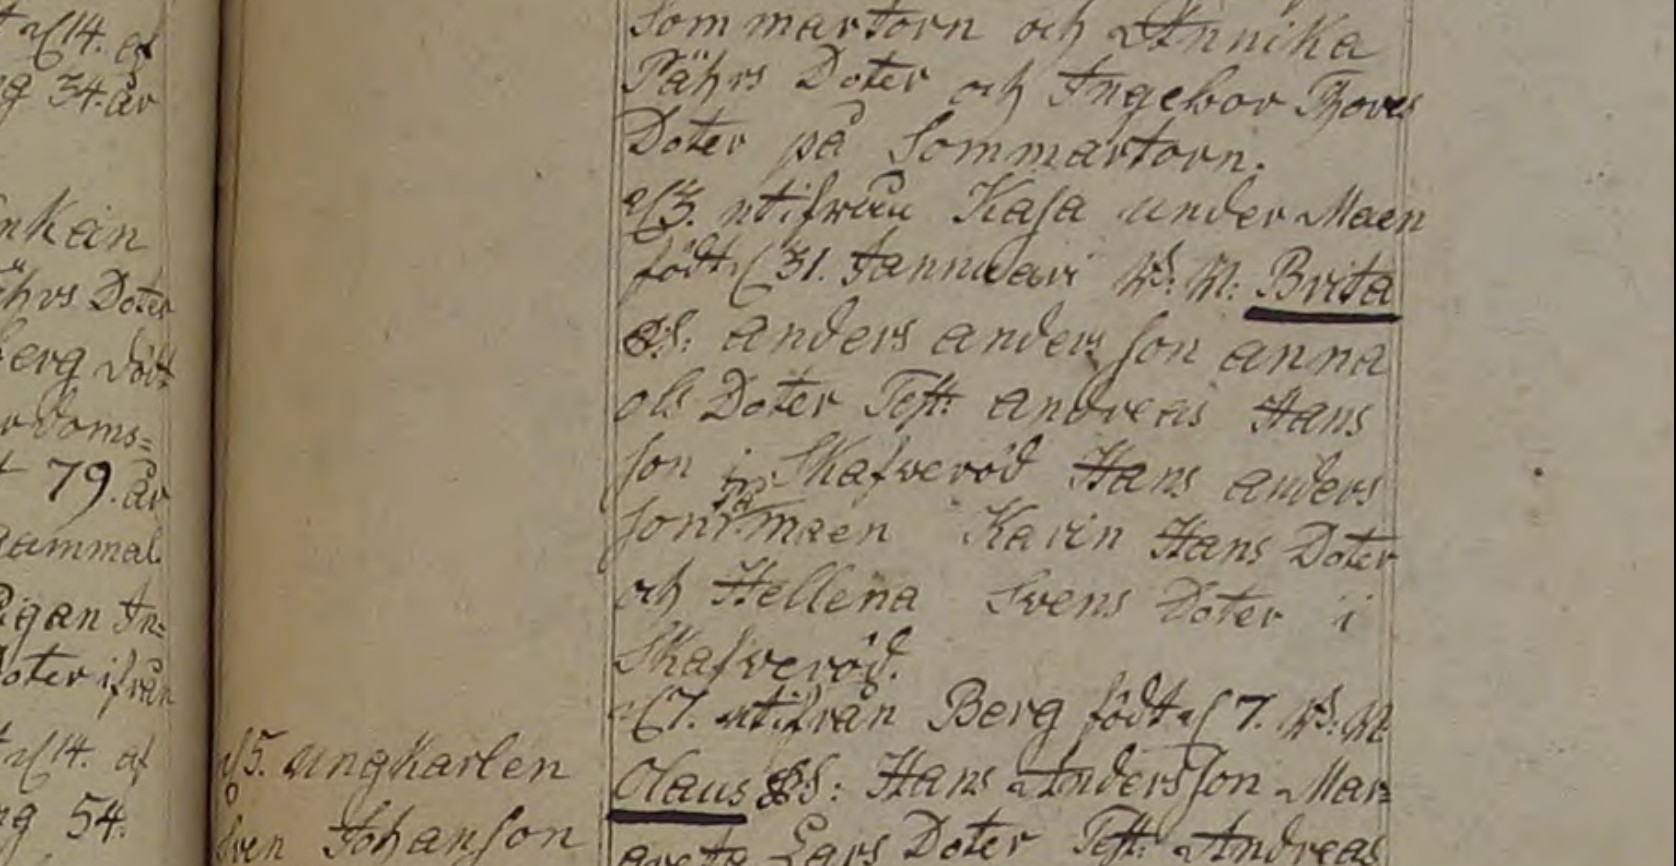 14. af
34. år
inkän
ährs Doter
berg dödt
rdoms=
79. år
gammal
Pigan In=
Doter ifrån
14. af
54.
d. 5. ungkarlen
Sven Johanson
Sommartorn och Annika
Pährs Doter och Ingebor Thores
Doter på Sommartorn.
d. 3. utifrån Kasa under Maen
födt d. 31. Jannuari K.d: N: Brita
F.S: anders anders son anna
ols Doter Test: andreas Hans
son i Skafveröd Hans anders
son på maen Karin Hans Doter
och Hellena Svens Doter i
Skafveröd.
d. 7. utifrån Berg födt d. 7. K.d: N.
Olaus F.S: Hans Andersson Mar=
areta Lars Doter Test: Andreas